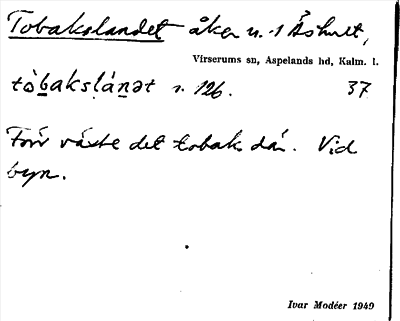 Tobakslandet åker n. 1 Äshult,
Virserums sn, Aspelands hd, Kalm. l.
tò̱baksḷáṉət s. 126. 37
Förr växte det tobak där. Vid
byn.
Ivar Modéer 1949